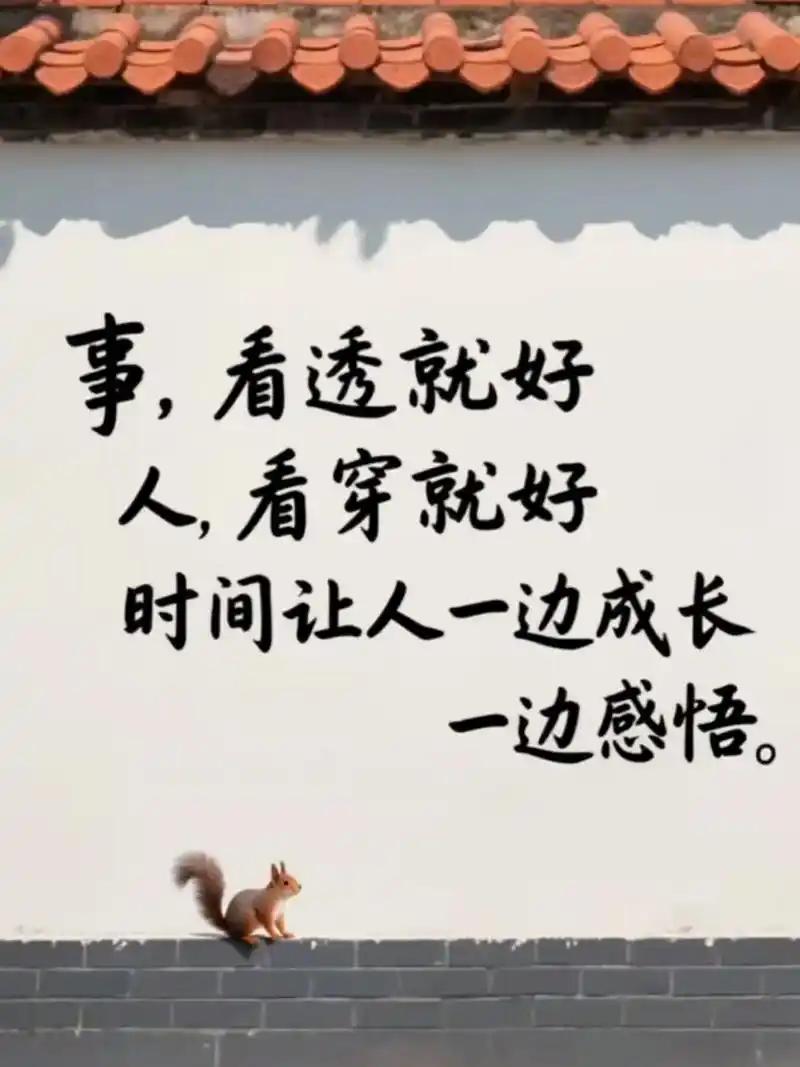 事，看透就好
人，看穿就好
时间让人一边成长
一边感悟。